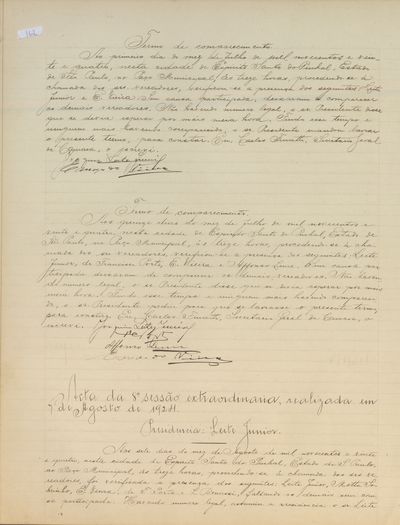 162
Termo de comparecimento.
No primeiro dia do mez de Julho de mil novecentos e vin-
te e quatro, nesta cidade de Espirito Santo do Pinhal, Estado
de São Paulo, no Paço Municipal, ás treze horas, procedendo-se á
chamada dos srs. vereadores, verificou-se a presença dos seguintes: Leite
Junior e E. Vieira. Sem causa participada, deixaram de comparecer
os demais vereadores. Não havendo numero legal, o sr. Presidente disse
que se devia esperar por mais meia hora. Findo esse tempo e
ninguem mais havendo comparecido, o sr. Presidente mandou lavrar
o presente termo, para constar. Eu, Carlos, Secretario Geral
da Camara, o escrevi.
Leite Junior
Vieira
Termo de comparecimento.
Aos quinze dias do mez de Julho de mil novecentos e
vinte e quatro, nesta cidade de Espirito Santo do Pinhal, Estado de
São Paulo, no Paço Municipal, ás treze horas, procedendo-se á cha-
mada dos srs. vereadores, verificou-se a presença dos seguintes: Leite
Junior, de Francisco Porto, E. Vieira e Affonso. Sem causa par-
ticipada deixaram de comparecer os demais vereadores. Não haven-
do numero legal, o sr. Presidente disse que se devia esperar por mais
meia hora. Findo esse tempo e ninguem mais havendo compareci-
do, o sr. Presidente pediu para que se lavrasse o presente termo,
para constar. Eu, Carlos, Secretario Geral da Camara, o
escrevi. Leite Junior
Affonso
Vieira
Acta da 8ª sessão extraordinaria, realizada em
7 de Agosto de 1924.
Presidencia: Leite Junior.
Aos sete dias do mez de Agosto de mil novecentos e vinte
e quatro, nesta cidade de Espirito Santo do Pinhal, Estado de S. Paulo,
no Paço Municipal, ás treze horas, procedendo-se á chamada dos srs. ve-
readores, foi verificada a presença dos seguintes: Leite Junior, Motta So-
brinho, E. Vieira, de F. Porto e, faltando os demais sem cau-
sa participada. Havendo numero legal, assumiu a presidencia o sr. Leite